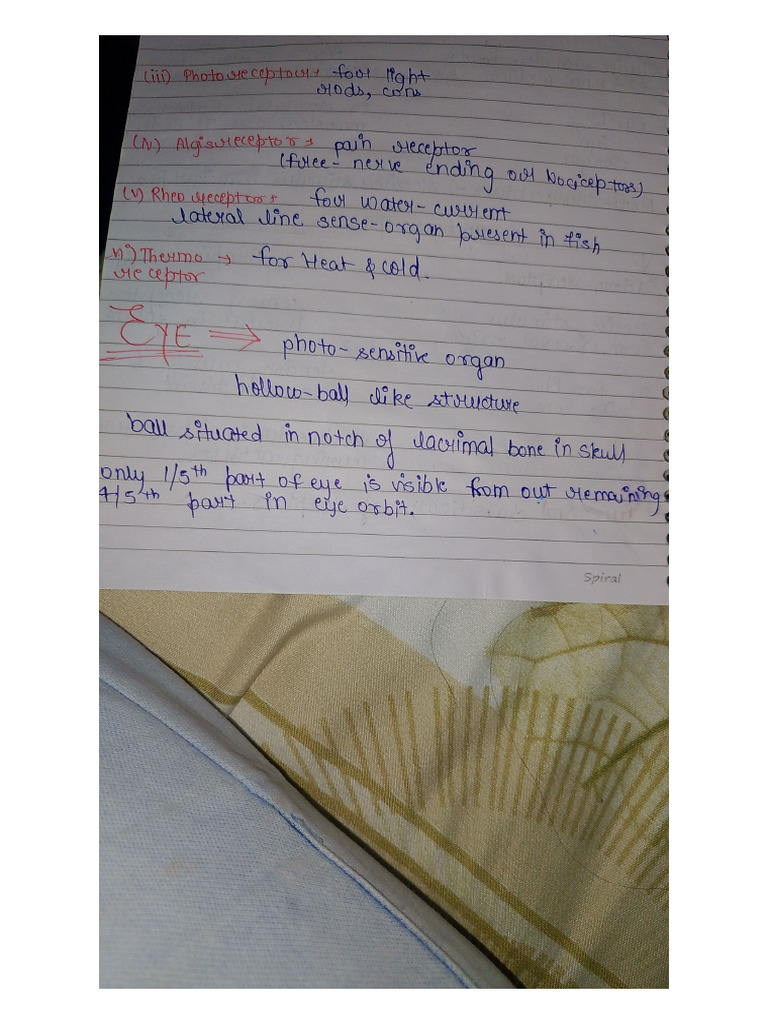 (iii) Photoreceptor → for light
rods, cons
(iv) Algisireceptor → pain receptor
(free-nerve ending or Nociceptors)
(v) Rheo receptor → for water-current
lateral line sense-organ present in fish
vi) Thermo → for Heat & cold.
receptor
EYE ⇒ photo-sensitive organ
hollow-ball like structure
ball situated in notch of lacrimal bone in skull
only 1/5th part of eye is visible from out remaining
4/5th part in eye orbit.
Spiral